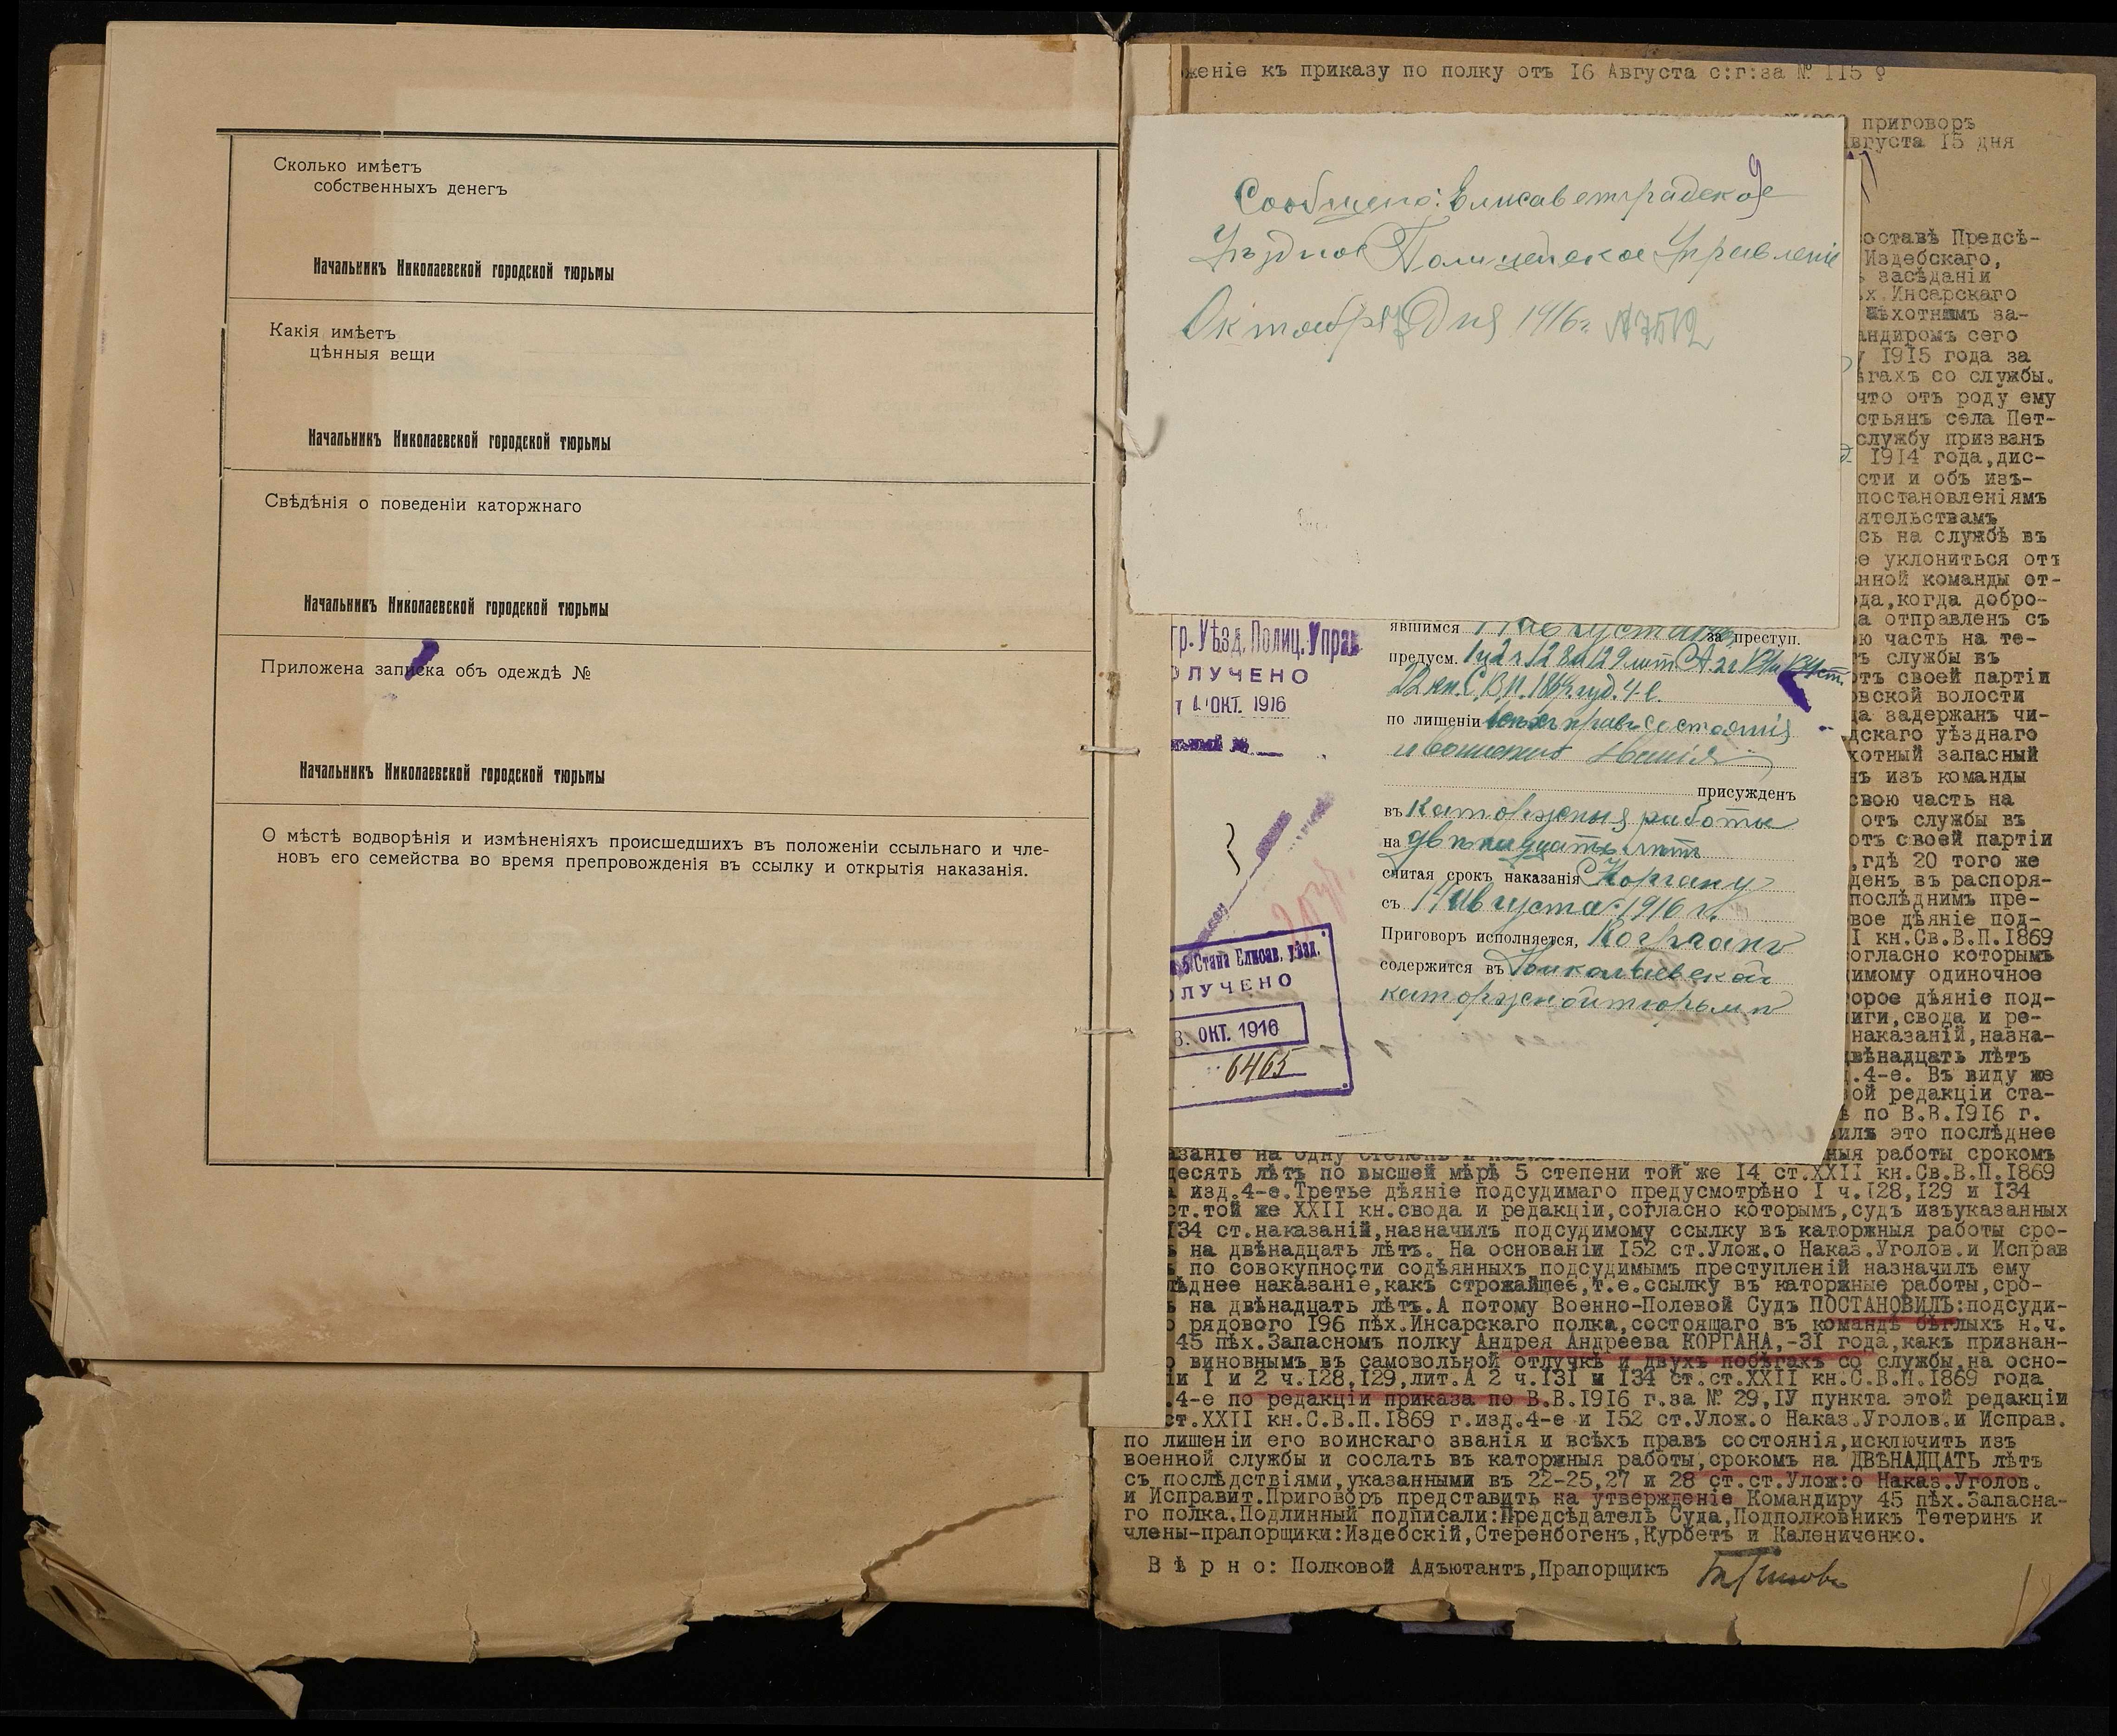 Сколько имѣетъ
собственныхъ денегъ
Начальникъ Николаевской городской тюрьмы
Какія имѣетъ
цѣнныя вещи
Начальникъ Николаевской городской тюрьмы
Свѣдѣнія о поведеніи каторжнаго
Начальникъ Николаевской городской тюрьмы
Приложена записка объ одеждѣ №
Начальникъ Николаевской городской тюрьмы
О мѣстѣ водворѣнія и измѣненіяхъ происшедшихъ въ положеніи ссыльнаго и чле-
новъ его семейства во время препровожденія въ ссылку и открытія наказанія.
женіе къ приказу по полку отъ 16 Августа с:г:за № 115
приговоръ
вгуста 15 дня
9
Сообщено: Елисаветградское
Уѣздное Полицейское Управленіе
Октября 7 дня 1916 г. № 7512
оставѣ Предсѣ-
Издебскаго,
засѣданіи
х.Инсарскаго
ѣхотнымъ за-
андиромъ сего
1915 года за
ѣгахъ со службы.
что отъ роду ему
стьянъ села Пет-
службу призванъ
1914 года,дис-
сти и объ изъ-
постановленіямъ
ятельствамъ
сь на службѣ въ
е уклониться отъ
нной команды от-
ода,когда добро-
а отправленъ съ
ою часть на те-
ъ службы въ
отъ своей партіи
овской волости
да задержанъ чи-
дскаго уѣзднаго
хотный запасный
нъ изъ команды
свою часть на
отъ службы въ
отъ своей партіи
,гдѣ 20 того же
денъ въ распоря-
послѣднимъ пре-
вое дѣяніе под-
I кн.Св.В.П.1869
огласно которымъ
димому одиночное
орое дѣяніе под-
иги,свода и ре-
наказаній,назна-
двѣнадцать лѣтъ
.4-е. Въ виду же
ой редакціи ста-
по В.В.1916 г.
вилъ это послѣднее
ныя работы срокомъ
гр. Уѣзд. Полиц. Управ
ОЛУЧЕНО
4 ОКТ. 1916
№
явшимся 1 Августа за преступ.
предусм. 1 и 2 ч 128 и 129 лит А 2 ч 131
22 кн. С.В.П. 1869 год. 4-е.
по лишеніи всѣхъ правъ состоянія
и воинскаго званія
присужденъ
въ каторжныя работы
на двѣнадцать лѣтъ
считая срокъ наказанія Коргану
съ 14 Августа 1916 г.
Приговоръ исполняется, Корганъ
содержится въ Николаевской
каторжной тюрьмѣ
5 Стана Елисав. уѣзд.
ОЛУЧЕНО
3. ОКТ. 1916
6465
азаніе на одну степень и
десять лѣтъ по высшей мѣрѣ 5 степени той же 14 ст.XXII кн.Св.В.П.1869
изд.4-е.Третье дѣяніе подсудимаго предусмотрѣно I ч.128,129 и 134
ст.той же XXII кн.свода и редакціи,согласно которымъ,судъ изъуказанныхъ
134 ст.наказаній,назначилъ подсудимому ссылку въ каторжныя работы сро-
на двѣнадцать лѣтъ. На основаніи 152 ст.Улож.о Наказ.Уголов.и Исправ
по совокупности содѣянныхъ подсудимымъ преступленій назначилъ ему
лѣднее наказаніе,какъ строжайшее,т.е.ссылку въ каторжные работы,сро-
на двѣнадцать лѣтъ.А потому Военно-Полевой Судъ ПОСТАНОВИЛЪ:подсуди-
рядового 196 пѣх.Инсарскаго полка,состоящаго въ командѣ бѣглыхъ н.ч.
45 пѣх.Запасномъ полку Андрея Андреева КОРГАНА,-31 года,какъ признан-
виновнымъ въ самовольной отлучкѣ и двухъ побѣгахъ со службы,на осно-
іи I и 2 ч.128,129,лит.А 2 ч.131 и 134 ст.ст.XXII кн.С.В.П.1869 года
.4-е по редакціи приказа по В.В.1916 г.за № 29,IУ пункта этой редакціи
ст.XXII кн.С.В.П.1869 г.изд.4-е и 152 ст.Улож.о Наказ.Уголов.и Исправ.
по лишеніи его воинскаго званія и всѣхъ правъ состоянія,исключить изъ
военной службы и сослать въ каторжныя работы,срокомъ на ДВѢНАДЦАТЬ лѣтъ
съ послѣдствіями,указанными въ 22-25,27 и 28 ст.ст.Улож:о Наказ.Уголов.
и Исправит.Приговоръ представить на утвержденіе Командиру 45 пѣх.Запасна-
го полка.Подлинный подписали:Предсѣдатель Суда,Подполковникъ Тетеринъ и
члены-прапорщики:Издебскій,Стеренбогенъ,Курбетъ и Калениченко.
В ѣ р н о: Полковой Адъютантъ,Прапорщикъ